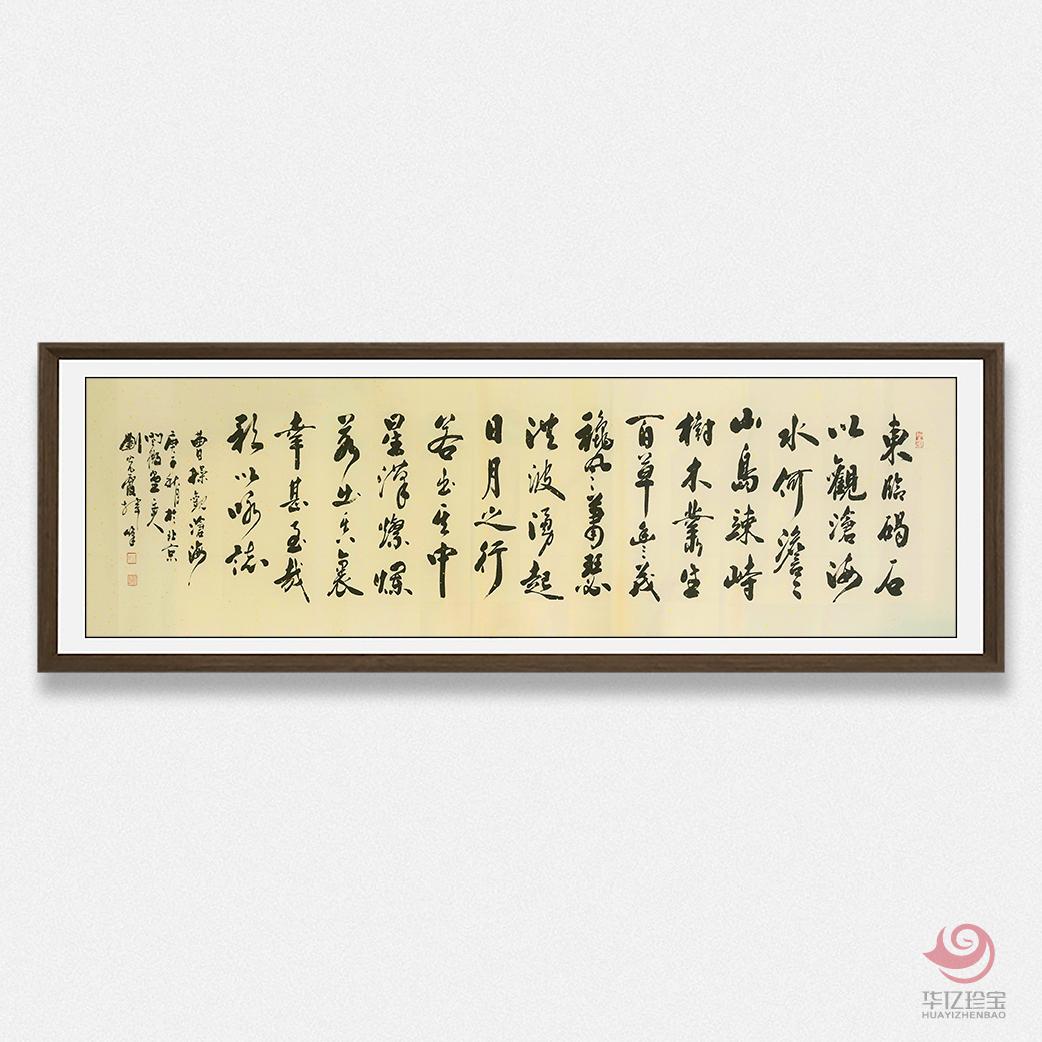 東臨碣石
以觀滄海
水何澹々
山島竦峙
樹木叢生
百草豐茂
穐風蕭瑟
洪波湧起
日月之行
若出其中
星漢燦爛
若出其裏
幸甚至哉
歌以咏誌
曹操觀滄海
庚子秋月於北京
堂主人
劉光霞
华亿珍宝
HUAYIZHENBAO